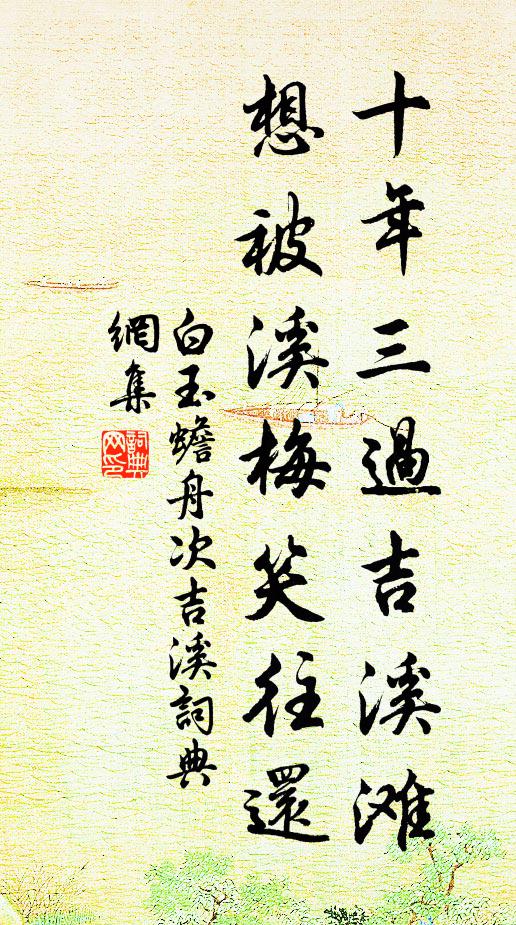 十年三過吉溪滩
想被溪梅笑往還
白玉蟾舟次吉溪詞典
網集
詞典
网印